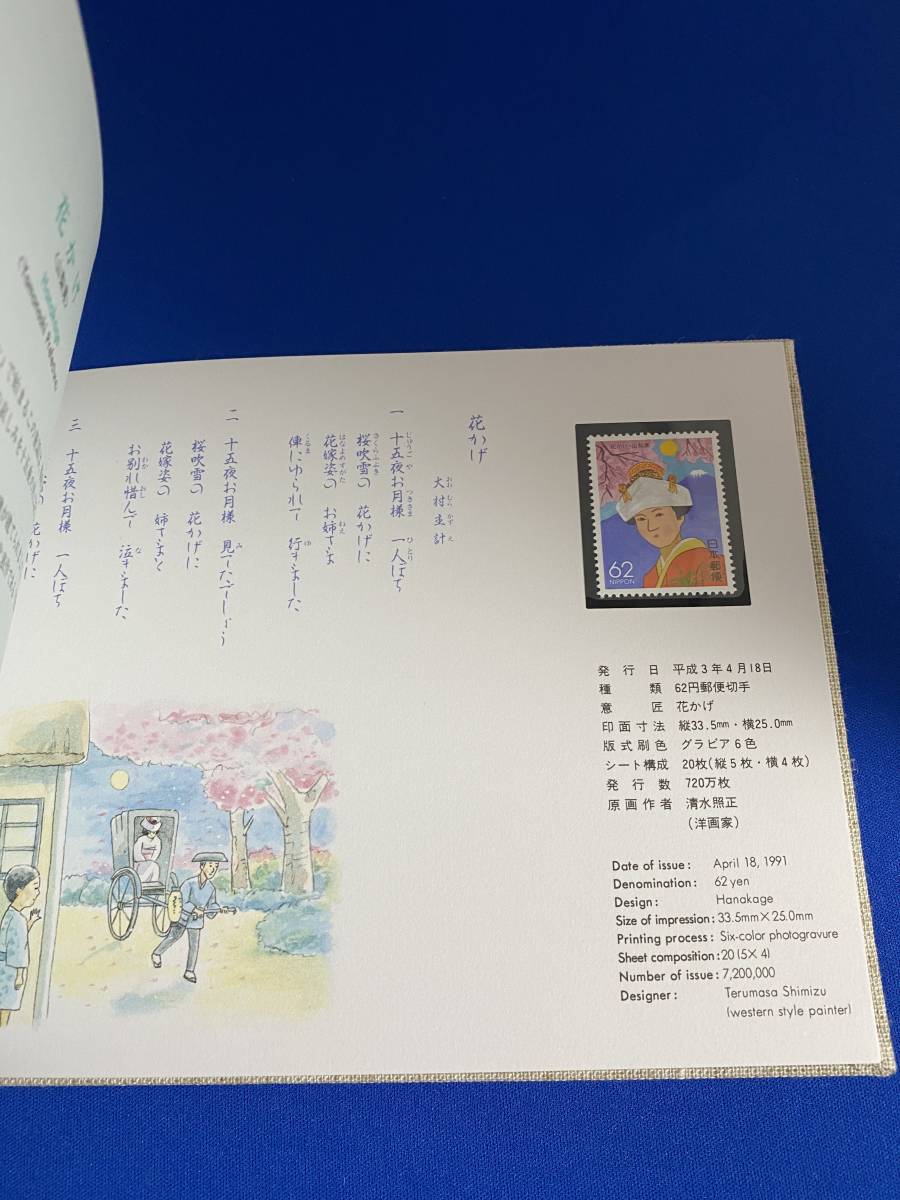 花かげ
大村主計
おお むら かず え
一 十五夜お月様 一人ぼち
じゅうご や つきさま ひとり
桜吹雪の 花かげに
さくらふぶき
花嫁姿の お姉さま
はなよめすがた ねえ
俥にゆられて 行きました
くるま ゆ
二 十五夜お月様 見てたでしょう
み
桜吹雪の 花かげに
花嫁姿の 姉さまと
お別れ惜んで 泣きました
わか おし な
三 十五夜お月様 一人ぼち
花かげに
花かげ・山梨県
日本郵便
62
NIPPON
発行日 平成3年4月18日
種類 62円郵便切手
意匠 花かげ
印面寸法 縦33.5mm・横25.0mm
版式刷色 グラビア6色
シート構成 20枚(縦5枚・横4枚)
発行数 720万枚
原画作者 清水照正
(洋画家)
Date of issue: April 18, 1991
Denomination: 62 yen
Design: Hanakage
Size of impression: 33.5mm×25.0mm
Printing process: Six-color photogravure
Sheet composition: 20 (5×4)
Number of issue: 7,200,000
Designer: Terumasa Shimizu
(western style painter)